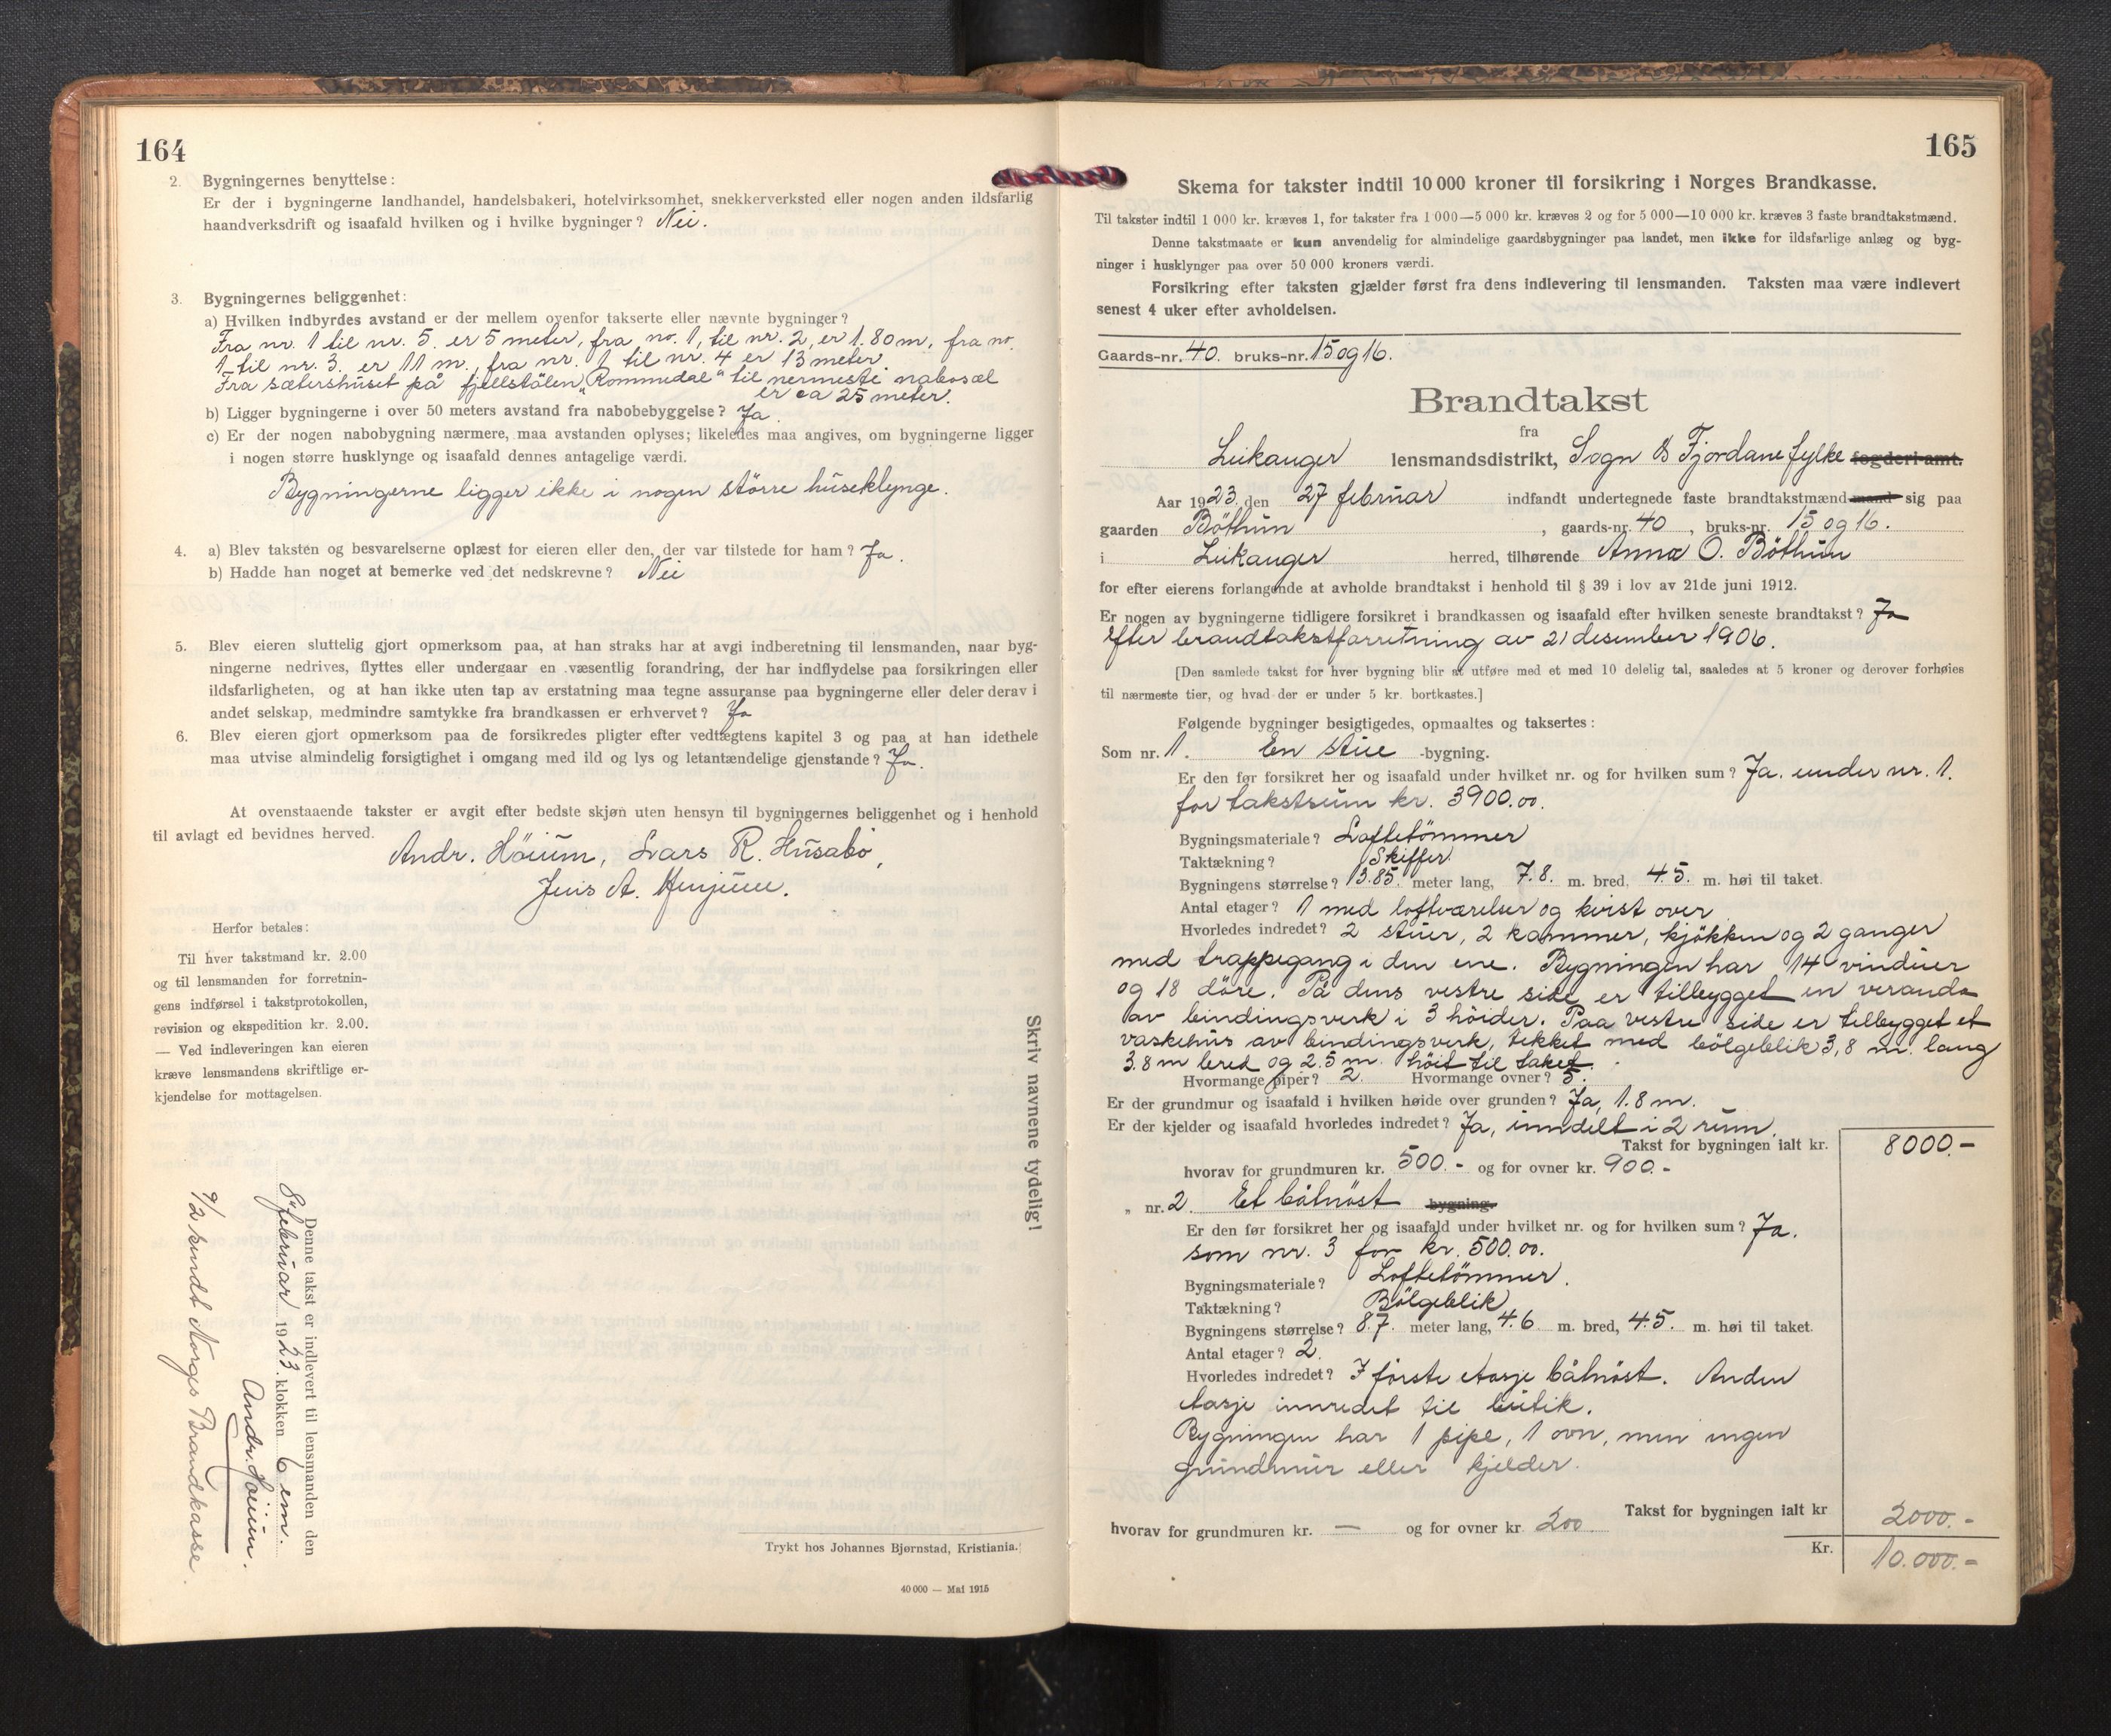 164
2. Bygningernes benyttelse:
Er der i bygningerne landhandel, handelsbakeri, hotelvirksomhet, snekkerverksted eller nogen anden ildsfarlig
haandverksdrift og isaafald hvilken og i hvilke bygninger? Nei.
3. Bygningernes beliggenhet:
a) Hvilken indbyrdes avstand er der mellem ovenfor takserte eller nævnte bygninger?
Fra nr. 1 til nr. 5. er 5 meter, fra no. 1, til nr. 2, er 1.80 m, fra no.
1 til nr. 3. er 11 m, fra nr. 1 til nr. 4 er 13 meter.
Fra sætershuset på fjellstölen „Rommedal" til nermeste nabosæl
er ca 25 meter.
b) Ligger bygningerne i over 50 meters avstand fra nabobebyggelse? Ja.
c) Er der nogen nabobygning nærmere, maa avstanden oplyses; likeledes maa angives, om bygningerne ligger
i nogen større husklynge og isaafald dennes antagelige værdi.
Bygningerne ligger ikke i nogen större huseklynge.
4. a) Blev taksten og besvarelserne oplæst for eieren eller den, der var tilstede for ham? Ja.
b) Hadde han noget at bemerke ved det nedskrevne? Nei
5. Blev eieren sluttelig gjort opmerksom paa, at han straks har at avgi indberetning til lensmanden, naar byg-
ningerne nedrives, flyttes eller undergaar en væsentlig forandring, der har indflydelse paa forsikringen eller
ildsfarligheten, og at han ikke uten tap av erstatning maa tegne assuranse paa bygningerne eller deler derav i
andet selskap, medmindre samtykke fra brandkassen er erhvervet? Ja
6. Blev eieren gjort opmerksom paa de forsikredes pligter efter vedtægtens kapitel 3 og paa at han idethele
maa utvise almindelig forsigtighet i omgang med ild og lys og letantændelige gjenstande? Ja.
At ovenstaaende takster er avgit efter bedste skjøn uten hensyn til bygningernes beliggenhet og i henhold
til avlagt ed bevidnes herved.
Andr. Höium, Lars R. Husabö,
Jens A. Henjum.
Herfor betales:
Til hver takstmand kr. 2.00
og til lensmanden for forretnin-
gens indførsel i takstprotokollen,
revision og ekspedition kr. 2.00.
— Ved indleveringen kan eieren
kræve lensmandens skriftlige er-
kjendelse for mottagelsen.
Skriv navnene tydelig!
Denne takst er indlevert til lensmanden den
8 februar 1923. klokken 6 em.
Andr. Höium.
9/2 sendt Norges Brandkasse.
Trykt hos Johannes Bjørnstad, Kristiania.
40 000 — Mai 1915
165
Skema for takster indtil 10 000 kroner til forsikring i Norges Brandkasse.
Til takster indtil 1 000 kr. kræves 1, for takster fra 1 000—5 000 kr. kræves 2 og for 5 000—10 000 kr. kræves 3 faste brandtakstmænd.
Denne takstmaate er kun anvendelig for almindelige gaardsbygninger paa landet, men ikke for ildsfarlige anlæg og byg-
ninger i husklynger paa over 50 000 kroners værdi.
Forsikring efter taksten gjælder først fra dens indlevering til lensmanden. Taksten maa være indlevert
senest 4 uker efter avholdelsen.
Gaards-nr. 40. bruks-nr. 15 og 16.
Brandtakst
fra
Leikanger lensmandsdistrikt, Sogn & Fjordane fylke fogderi-amt.
Aar 1923, den 27 februar indfandt undertegnede faste brandtakstmænd mand sig paa
gaarden Böthun, gaards-nr. 40, bruks-nr. 15 og 16.
i Leikanger herred, tilhørende Anna O. Böthun
for efter eierens forlangende at avholde brandtakst i henhold til § 39 i lov av 21de juni 1912.
Er nogen av bygningerne tidligere forsikret i brandkassen og isaafald efter hvilken seneste brandtakst? Ja
efter brandtakstforretning av 21 desember 1906.
[Den samlede takst for hver bygning blir at utføre med et med 10 delelig tal, saaledes at 5 kroner og derover forhøies
til nærmeste tier, og hvad der er under 5 kr. bortkastes.]
Følgende bygninger besigtigedes, opmaaltes og taksertes:
Som nr. 1. En stue -bygning.
Er den før forsikret her og isaafald under hvilket nr. og for hvilken sum? Ja. under nr. 1.
for takstsum kr. 3900.00.
Bygningsmateriale? Loftetömmer
Taktækning? Skiffer.
Bygningens størrelse? 13.85. meter lang, 7.8. m. bred, 4.5. m. høi til taket.
Antal etager? 1 med loftværelser og kvist over
Hvorledes indredet? 2 stuer, 2 kammer, kjökken og 2 ganger
med trappegang i den ene. Bygningen har 14 vinduer
og 18 döre. På dens vestre side er tilbygget en veranda
av bindingsverk i 3 höider. Paa vestre side er tilbygget et
vaskehus av bindingsverk, tekket med bölgeblik 3,8 m. lang
3.8 m bred og 2.5 m. höit til taket.
Hvormange piper? 2. Hvormange ovner? 5.
Er der grundmur og isaafald i hvilken høide over grunden? Ja, 1.8 m.
Er der kjelder og isaafald hvorledes indredet? Ja, inndelt i 2 rum.
Takst for bygningen ialt kr. 8000.-
hvorav for grundmuren kr. 500.- og for ovner kr. 900.-
„ nr. 2. Et båtnöst bygning.
Er den før forsikret her og isaafald under hvilket nr. og for hvilken sum? Ja.
som nr. 3 for kr. 500.00.
Bygningsmateriale? Loftetömmer.
Taktækning? Bölgeblik
Bygningens størrelse? 8.7. meter lang, 4.6 m. bred, 4.5. m. høi til taket.
Antal etager? 2.
Hvorledes indredet? I förste etasje båtnöst. Anden
etasje innredet til butik.
Bygningen har 1 pipe, 1 ovn, men ingen
grundmur eller kjelder.
Takst for bygningen ialt kr 2000.-
hvorav for grundmuren kr. — og for ovner kr 200.
Kr. 10.000.-